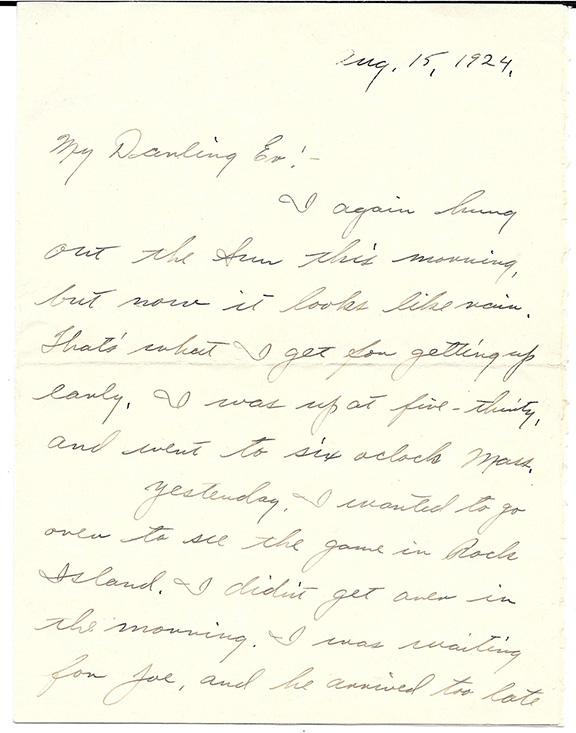 Aug. 15, 1924.
My Darling Ev!-
I again hung
out the Sun this morning,
but now it looks like rain.
That's what I get for getting up
early. I was up at five-thirty,
and went to six oclock Mass.
Yesterday, I wanted to go
over to see the game in Rock
Island. I didn't get over in
the morning. I was waiting
for Joe, and he arrived too late